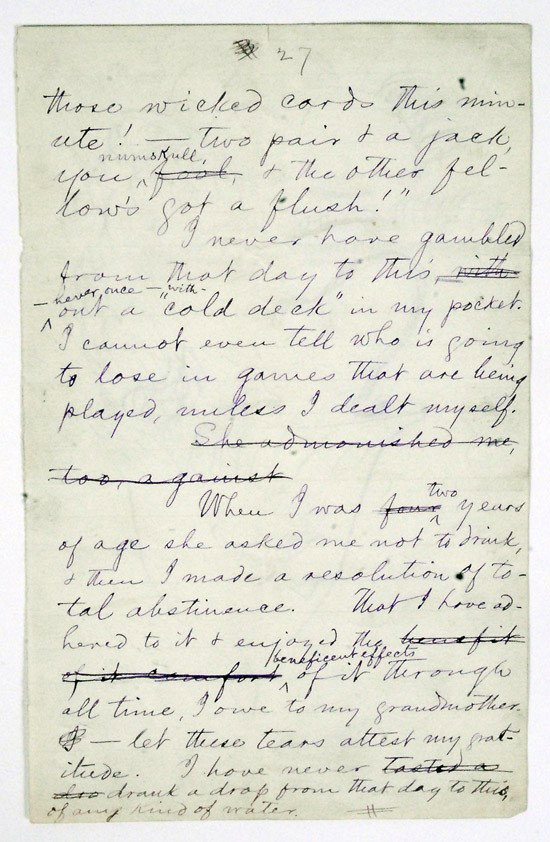 27
those wicked cards this min-
ute! — two pair & a jack,
numskull,
you ^ fool, & the other fel-
low's got a flush!"
I never have gambled
from that day to this, with
— never once — with-
^ out a "cold deck" in my pocket.
I cannot even tell who is going
to lose in games that are being
played, unless I dealt myself.
She admonished me,
too, against
two
When I was four ^ years
of age she asked me not to drink,
& then I made a resolution of to-
tal abstinence. That I have ad-
hered to it & enjoyed the benefit
beneficent effects
of it comfort ^ of it through
all time, I owe to my grandmother.
— let these tears attest my grat-
itude. I have never tasted a
dro drank a drop from that day to this,
of any kind of water.